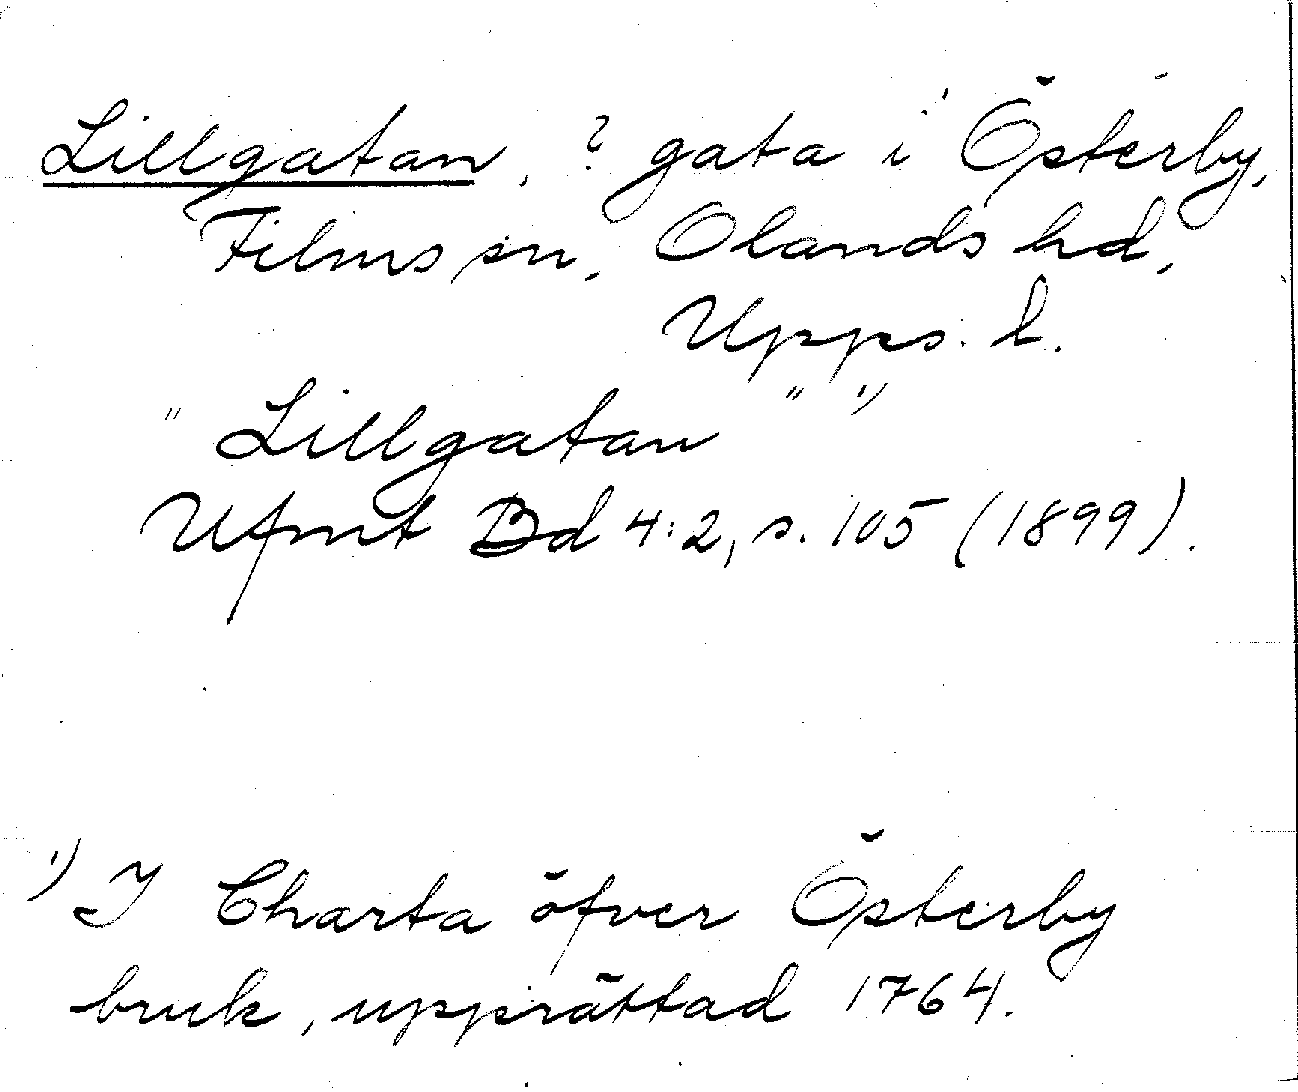 Lillgatan, ? gata i Österby,
Films sn, Olands hd,
Upps. l.
"Lillgatan" 1)
Ufmt Bd 4:2, s. 105 (1899).
1) I Charta öfver Österby
bruk, upprättad 1764.